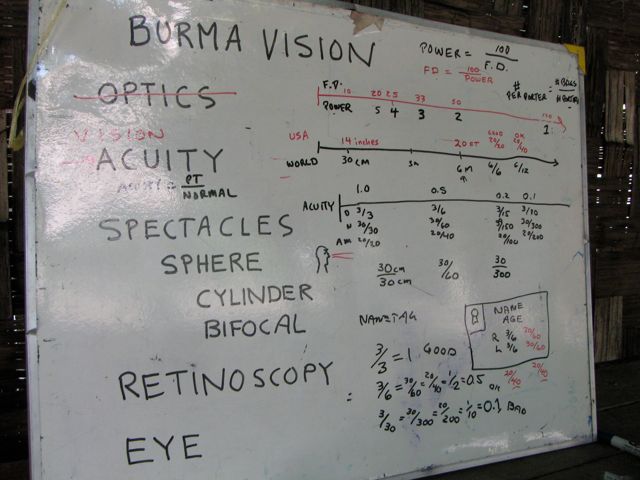 BURMA VISION
POWER = 100/F.D.
FD = 100/POWER
# PER PORTER = # BOXES/# PORTERS
OPTICS
F.D. 10 20 25 33 50 100
POWER 5 4 3 2 1
VISION
ACUITY
ACUITY = PT/NORMAL
USA 14 inches 20 FT GOOD 20/20 OK 20/40
WORLD 30 CM 3M 6M 6/6 6/12
ACUITY 1.0 0.5 0.2 0.1
D 3/3 3/6 3/15 3/30
N 30/30 30/60 30/150 30/300
AM 20/20 20/40 20/100 20/200
SPECTACLES
SPHERE
30cm/30cm 30/60 30/300
CYLINDER
BIFOCAL
NAMETAG
NAME
AGE
R 3/6 30/60
L 3/6 30/60
20/40 20/40
RETINOSCOPY
3/3 = 1 GOOD
3/6 = 30/60 = 20/40 = 1/2 = 0.5 OK
3/30 = 30/300 = 20/200 = 1/10 = 0.1 BAD
EYE